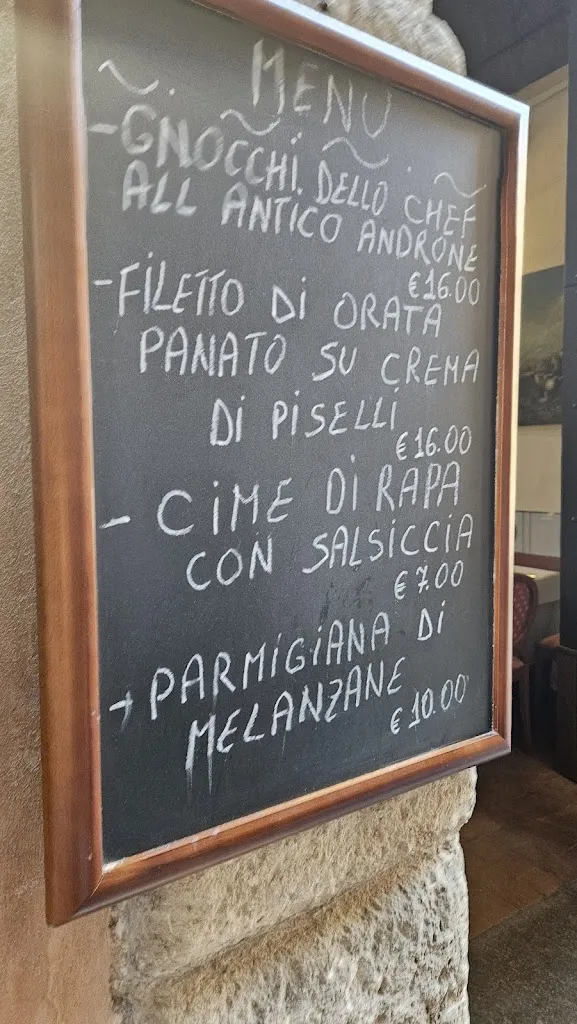 MENU
-GNOCCHI DELLO CHEF
ALL ANTICO ANDRONE
€16.00
-FILETTO DI ORATA
PANATO SU CREMA
DI PISELLI
€16.00
- CIME DI RAPA
CON SALSICCIA
€7.00
→ PARMIGIANA DI
MELANZANE
€10.00